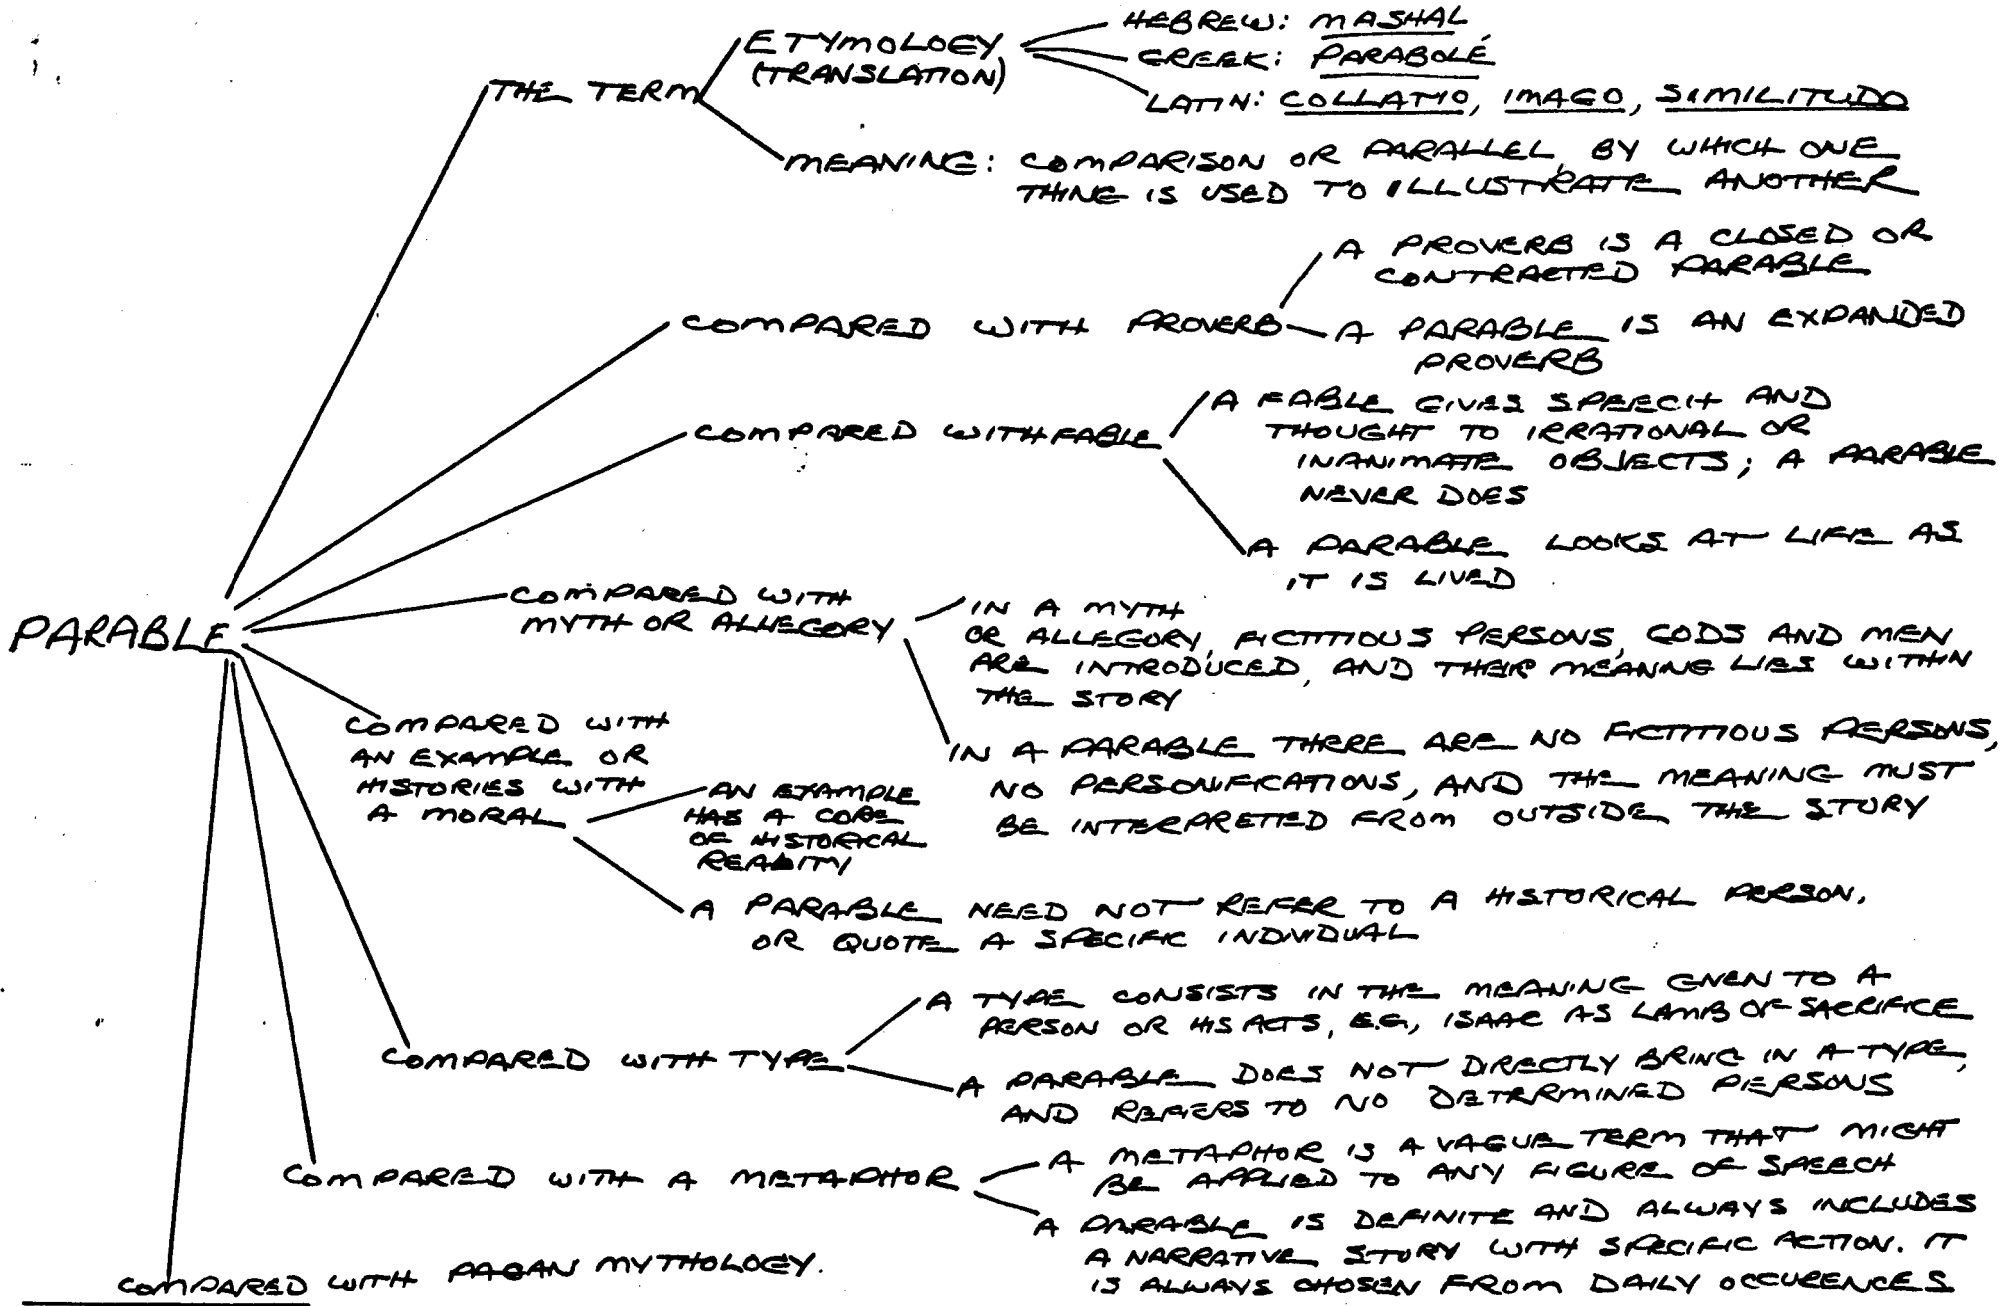 PARABLE
THE TERM
ETYMOLOGY
(TRANSLATION)
HEBREW: MASHAL
GREEK: PARABOLÉ
LATIN: COLLATIO, IMAGO, SIMILITUDO
MEANING: COMPARISON OR PARALLEL, BY WHICH ONE
THING IS USED TO ILLUSTRATE ANOTHER
COMPARED WITH PROVERB
A PROVERB IS A CLOSED OR
CONTRACTED PARABLE
A PARABLE IS AN EXPANDED
PROVERB
COMPARED WITH FABLE
A FABLE GIVES SPEECH AND
THOUGHT TO IRRATIONAL OR
INANIMATE OBJECTS; A PARABLE
NEVER DOES
A PARABLE LOOKS AT LIFE AS
IT IS LIVED
COMPARED WITH
MYTH OR ALLEGORY
IN A MYTH
OR ALLEGORY, FICTITIOUS PERSONS, GODS AND MEN
ARE INTRODUCED, AND THEIR MEANING LIES WITHIN
THE STORY
IN A PARABLE THERE ARE NO FICTITIOUS PERSONS,
NO PERSONIFICATIONS, AND THE MEANING MUST
BE INTERPRETED FROM OUTSIDE THE STORY
COMPARED WITH
AN EXAMPLE OR
HISTORIES WITH
A MORAL
AN EXAMPLE
HAS A CORE
OF HISTORICAL
REALITY
A PARABLE NEED NOT REFER TO A HISTORICAL PERSON,
OR QUOTE A SPECIFIC INDIVIDUAL
COMPARED WITH TYPE
A TYPE CONSISTS IN THE MEANING GIVEN TO A
PERSON OR HIS ACTS, E.G., ISAAC AS LAMB OF SACRIFICE
A PARABLE DOES NOT DIRECTLY BRING IN A TYPE,
AND REFERS TO NO DETERMINED PERSONS
COMPARED WITH A METAPHOR
A METAPHOR IS A VAGUE TERM THAT MIGHT
BE APPLIED TO ANY FIGURE OF SPEECH
A PARABLE IS DEFINITE AND ALWAYS INCLUDES
A NARRATIVE STORY WITH SPECIFIC ACTION. IT
IS ALWAYS CHOSEN FROM DAILY OCCURENCES
COMPARED WITH PAGAN MYTHOLOGY.